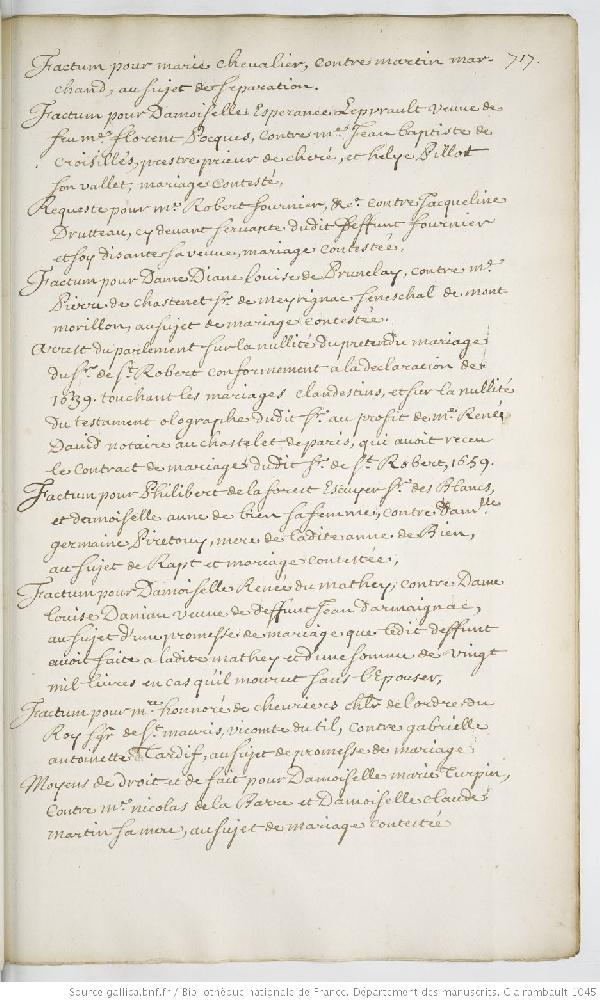 717.
Factum pour marie chevalier, contre martin mar-
chand, au sujet de separation.
Factum pour Damoiselle Esperance Lepprault veuve de
feu me. florent Bocques, contre me. Jean baptiste de
Croisilles, prestre prieur de cheré, et helye Billot
son vallet, mariage contesté,
Requeste pour me. Robert fournier, &ca. contre Jacqueline
Drutteau, cy devant servante dudit deffunt fournier
et soy disante sa veuve, mariage contestée,
Factum pour Dame Diane louise de Brunelay, contre me.
Pierre de chastenet sr. de meyrignac seneschal de mont-
morillon, au sujet de mariage contestée.
Arrest du parlement sur la nullité du pretendu mariage
du sr. de st. Robert conformement a la declaration de
1639. touchant les mariages clandestins, et sur la nullité
du testament olographe dudit sr. au profit de me. René
David notaire au chastelet de paris, qui avoit receu
le Contract de mariage dudit sr. de st. Robert, 1659.
Factum pour Philibert de la forest Escuyer sr. des Blancs,
et damoiselle anne de bien sa femme, contre Damlle
germaine Piretouy, mere de ladite anne de Bien,
au sujet de Rapt et mariage contestée,
Factum pour Damoiselle Renée du mathey, contre Dame
louise Daniau veuve de deffunt Jean d'armaignac,
au sujet d'une promesse de mariage que ledit deffunt
avoit faite a ladite mathey et d'une somme de vingt
mil livres en cas qu'il mourut sans l'Epouser,
Factum pour mre honnoré de chevriers chlr de l'ordre du
Roy sgr. de st. mauris, vicomte du til, contre gabrielle
antoinette Tardif, au sujet de promesse de mariage
Moyens de droit et de fait pour Damoiselle marie Turpin,
Contre me. nicolas de la Barre et Damoiselle claude
martin sa mere, au sujet de mariage contestée
Source gallica.bnf.fr / Bibliothèque nationale de France. Département des manuscrits. Clairambault 1045